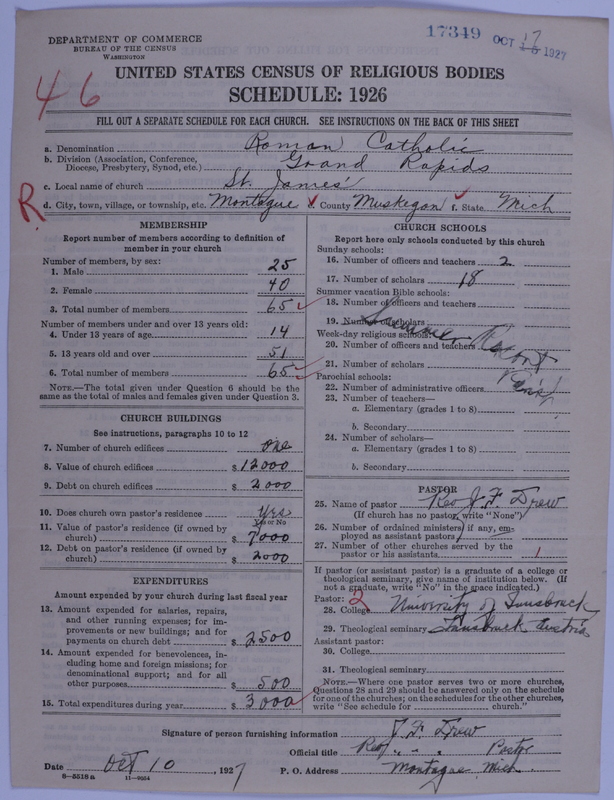 DEPARTMENT OF COMMERCE
BUREAU OF THE CENSUS
WASHINGTON
17349 OCT 17 1927
46
UNITED STATES CENSUS OF RELIGIOUS BODIES
SCHEDULE: 1926
FILL OUT A SEPARATE SCHEDULE FOR EACH CHURCH. SEE INSTRUCTIONS ON THE BACK OF THIS SHEET
a. Denomination Roman Catholic
b. Division (Association, Conference, Diocese, Presbytery, Synod, etc.) Grand Rapids
c. Local name of church St. James'
R
d. City, town, village, or township, etc. Montague e. County Muskegon f. State Mich
MEMBERSHIP
Report number of members according to definition of
member in your church
Number of members, by sex:
1. Male 25
2. Female 40
3. Total number of members 65
Number of members under and over 13 years old:
4. Under 13 years of age 14
5. 13 years old and over 51
6. Total number of members 65
NOTE.—The total given under Question 6 should be the
same as the total of males and females given under Question 3.
CHURCH BUILDINGS
See instructions, paragraphs 10 to 12
7. Number of church edifices one
8. Value of church edifices $12000
9. Debt on church edifices $2000
10. Does church own pastor's residence yes
Yes or No
11. Value of pastor's residence (if owned by
church) $7000
12. Debt on pastor's residence (if owned by
church) $2000
EXPENDITURES
Amount expended by your church during last fiscal year
13. Amount expended for salaries, repairs,
and other running expenses; for im-
provements or new buildings; and for
payments on church debt $2500
14. Amount expended for benevolences, in-
cluding home and foreign missions; for
denominational support; and for all
other purposes $500
15. Total expenditures during year $3000
CHURCH SCHOOLS
Report here only schools conducted by this church
Sunday schools:
16. Number of officers and teachers 2
17. Number of scholars 18
Summer vacation Bible schools:
18. Number of officers and teachers
19. Number of scholars
Summer Resort
Week-day religious schools:
20. Number of officers and teachers
21. Number of scholars
Parochial schools:
22. Number of administrative officers
23. Number of teachers—
a. Elementary (grades 1 to 8)
b. Secondary
24. Number of scholars—
a. Elementary (grades 1 to 8)
b. Secondary
PASTOR
25. Name of pastor Rev J. F. Drew
(If church has no pastor, write "None")
26. Number of ordained ministers, if any, em-
ployed as assistant pastors
27. Number of other churches served by the
pastor or his assistants 1
If pastor (or assistant pastor) is a graduate of a college or
theological seminary, give name of institution below. (If
not a graduate, write "No" in the space indicated.)
Pastor: 2
28. College University of Innsbruck
29. Theological seminary Innsbruck Austria
Assistant pastor:
30. College
31. Theological seminary
NOTE.—Where one pastor serves two or more churches,
Questions 28 and 29 should be answered only on the schedule
for one of the churches; on the schedules for the other churches,
write "See schedule for church."
Signature of person furnishing information J. F. Drew
Official title Rev " " " Pastor
Date Oct 10, 1927 P. O. Address Montague, Mich.
8—5518a 11—9054